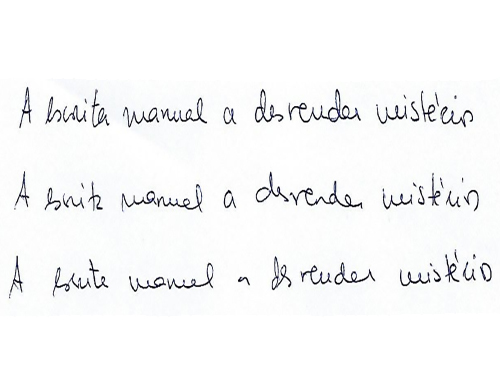 A escrita manual a desvendar mistérios
A escrita manual a desvendar mistérios
A escrita manual a desvendar mistérios